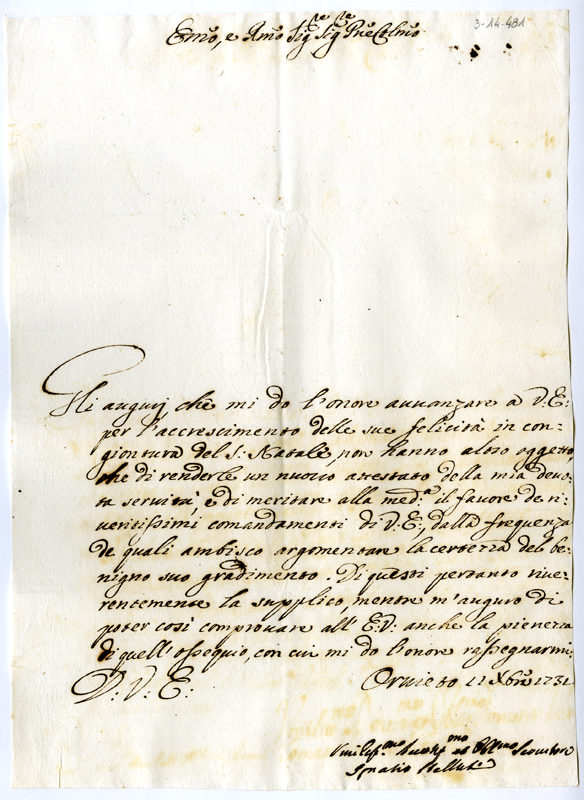 3-14-481
Emo, e Rmo Sigre Sigre Pne Colmo
Gli augurj, che mi do l'onore auuanzare a V: E:
per l'accrescimento delle sue felicità in con-
giontura del S: Natale, non hanno altro oggetto,
che di renderle un nuouo attestato della mia deuo-
ta seruitù, e di meritare alla med.a il fauore de ri-
ueritissimi comandamenti di V: E:, dalla frequenza
de quali ambisco argomentare la certezza del be-
nigno suo gradimento. Di questi pertanto riue-
rentemente la supplico, mentre m'auguro di
poter così comprouare all' E: V: anche la pienezza
di quell' ossequio, con cui mi do l'onore rassegnarmi
D: V: E: Oruieto 11 Xbre 1731
Seruitore
Ignatio